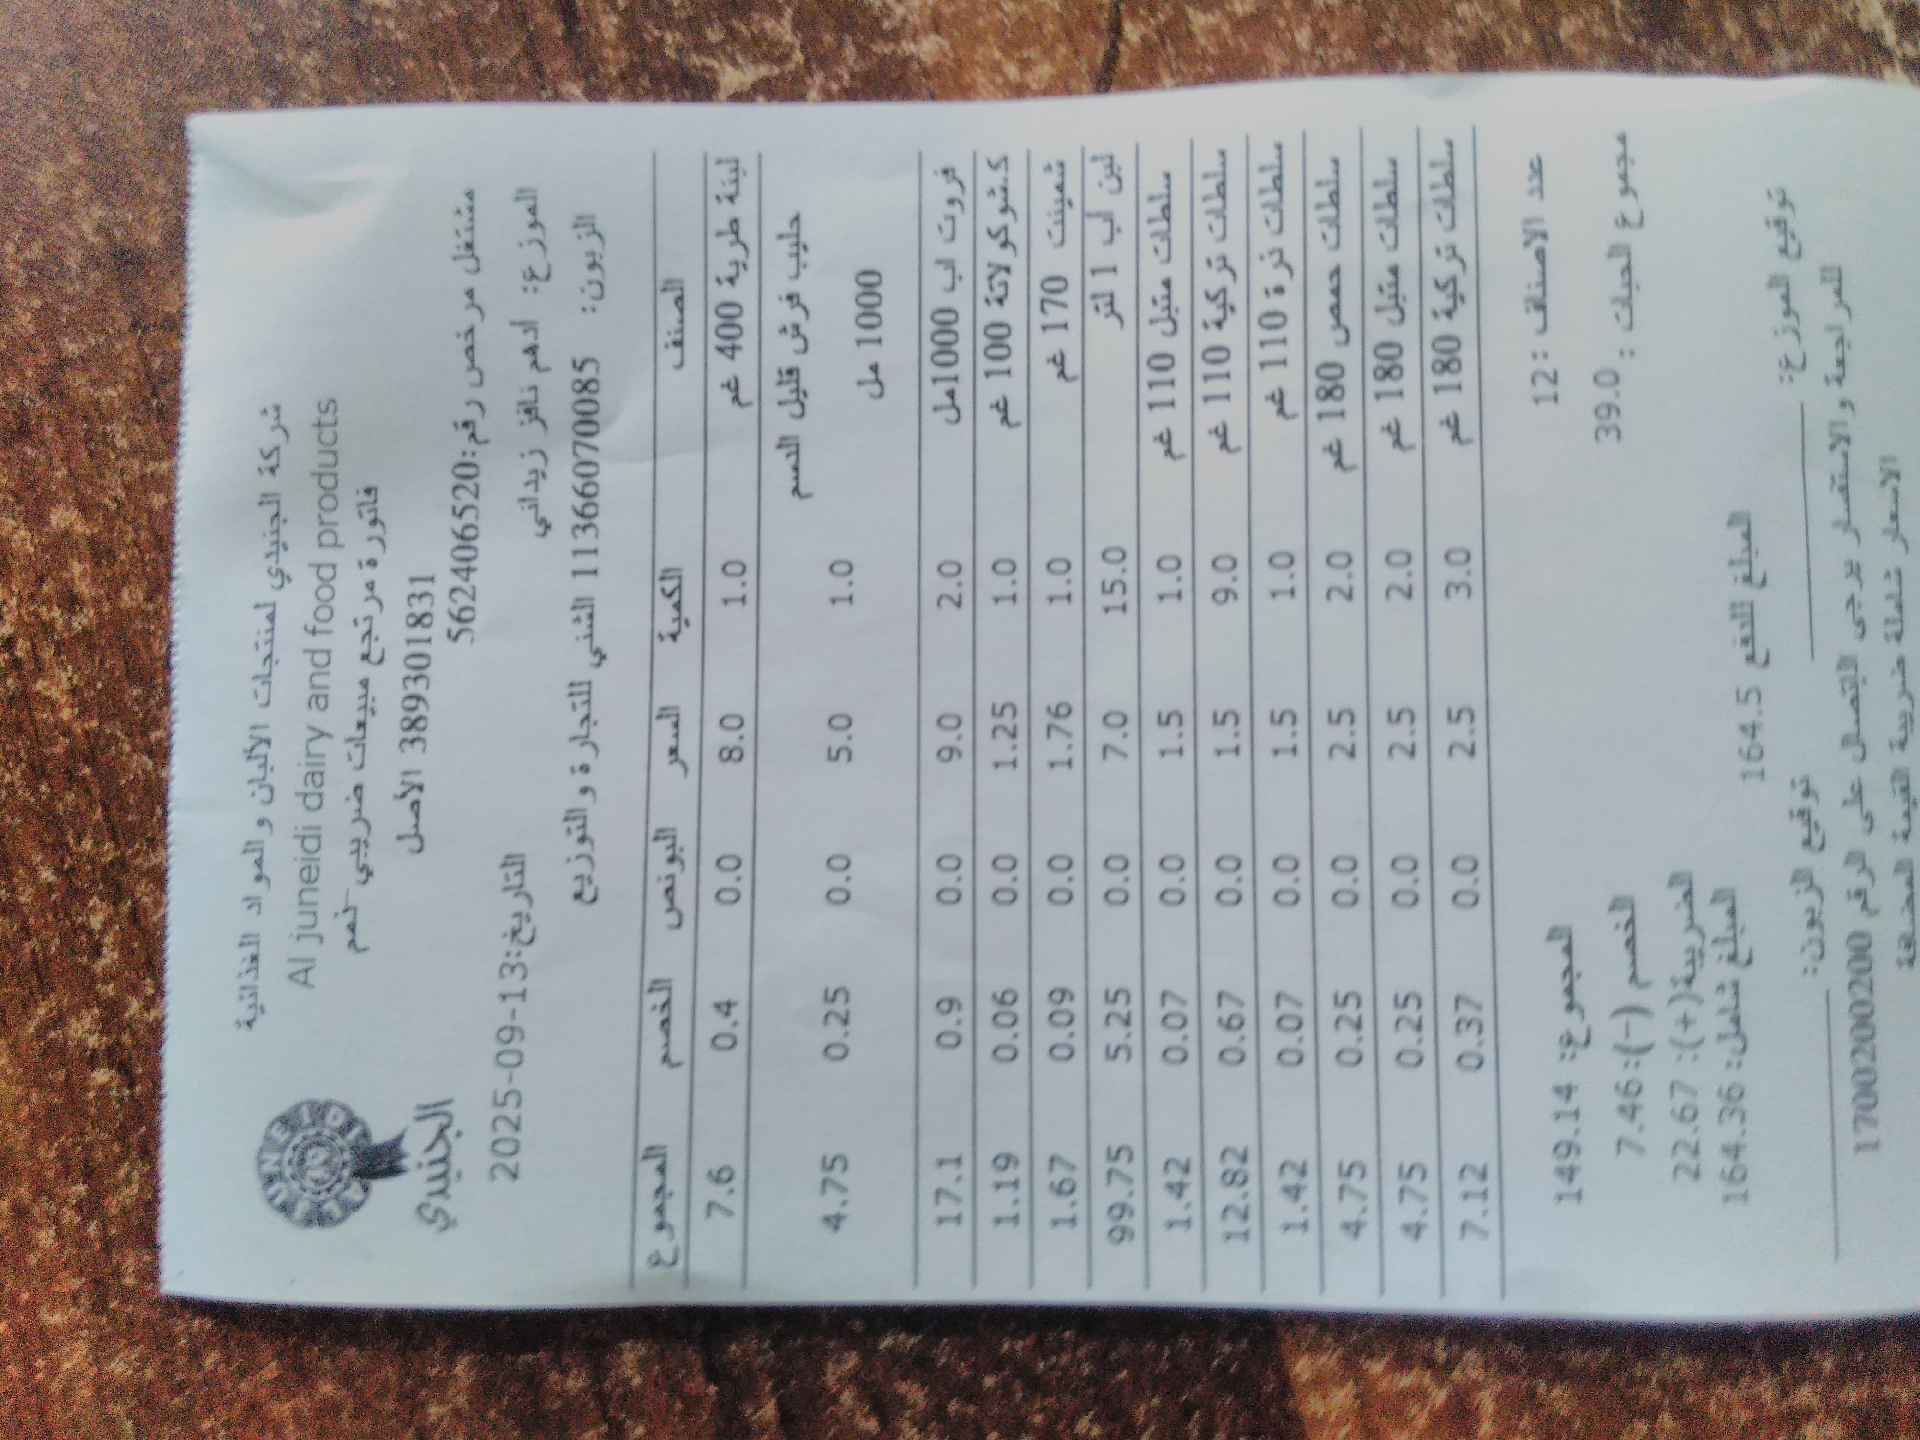 شركة الجنيدي لمنتجات الألبان والمواد الغذائية
Al juneidi dairy and food products
فاتورة مرتجع مبيعات ضريبي-نمم
389301831 الأصل
JUNEIDI
الجنيدي
مشتغل مرخص رقم:562406520
الموزع: ادهم نافز زيداني
التاريخ:2025-09-13
الزبون: 113660700085 الشني للتجارة والتوزيع
الصنف الكمية السعر البونص الخصم المجموع
لبنة طرية 400 غم 1.0 8.0 0.0 0.4 7.6
حليب فرش قليل الدسم
1000 مل 1.0 5.0 0.0 0.25 4.75
فروت اب 1000مل 2.0 9.0 0.0 0.9 17.1
ك.شوكولاتة 100 غم 1.0 1.25 0.0 0.06 1.19
شمينت 170 غم 1.0 1.76 0.0 0.09 1.67
لبن اب 1 لتر 15.0 7.0 0.0 5.25 99.75
سلطات متبل 110 غم 1.0 1.5 0.0 0.07 1.42
سلطات تركية 110 غم 9.0 1.5 0.0 0.67 12.82
سلطات ذرة 110 غم 1.0 1.5 0.0 0.07 1.42
سلطات حمص 180 غم 2.0 2.5 0.0 0.25 4.75
سلطات متبل 180 غم 2.0 2.5 0.0 0.25 4.75
سلطات تركية 180 غم 3.0 2.5 0.0 0.37 7.12
عدد الاصناف :12 المجموع: 149.14
مجموع الحبات : 39.0 الخصم (-):7.46
الضريبة(+): 22.67
المبلغ شامل: 164.36
المبلغ الدفع 164.5
توقيع الموزع: توقيع الزبون:
للمراجعة والاستفسار يرجى الاتصال على الرقم 1700200200
الاسعار شاملة ضريبة القيمة المضافة